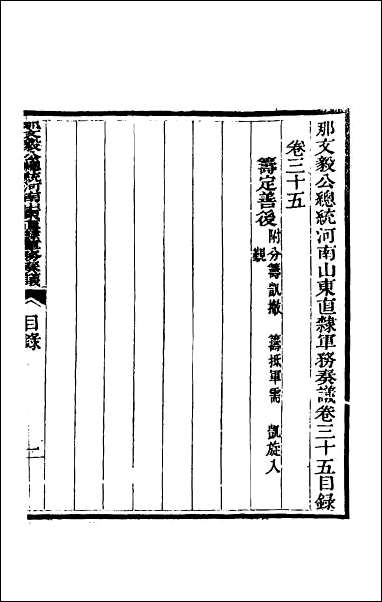 那文毅公總統河南山東直隸軍務奏議卷三十五目錄
卷三十五
籌定善後 附分籌凱撤 籌抵軍需 凱旋入
覲
那文毅公總統河南山東直隸軍務奏議
目錄
一